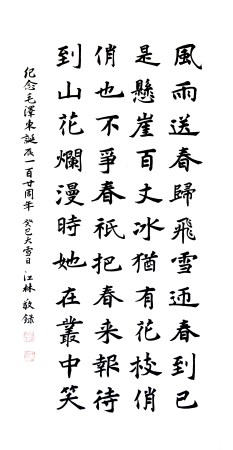 風雨送春歸飛雪迎春到已
是懸崖百丈冰猶有花枝俏
俏也不爭春祇把春来報待
到山花爛漫時她在叢中笑
紀念毛澤東誕辰一百廿周年 癸巳大雪日 江林敬録